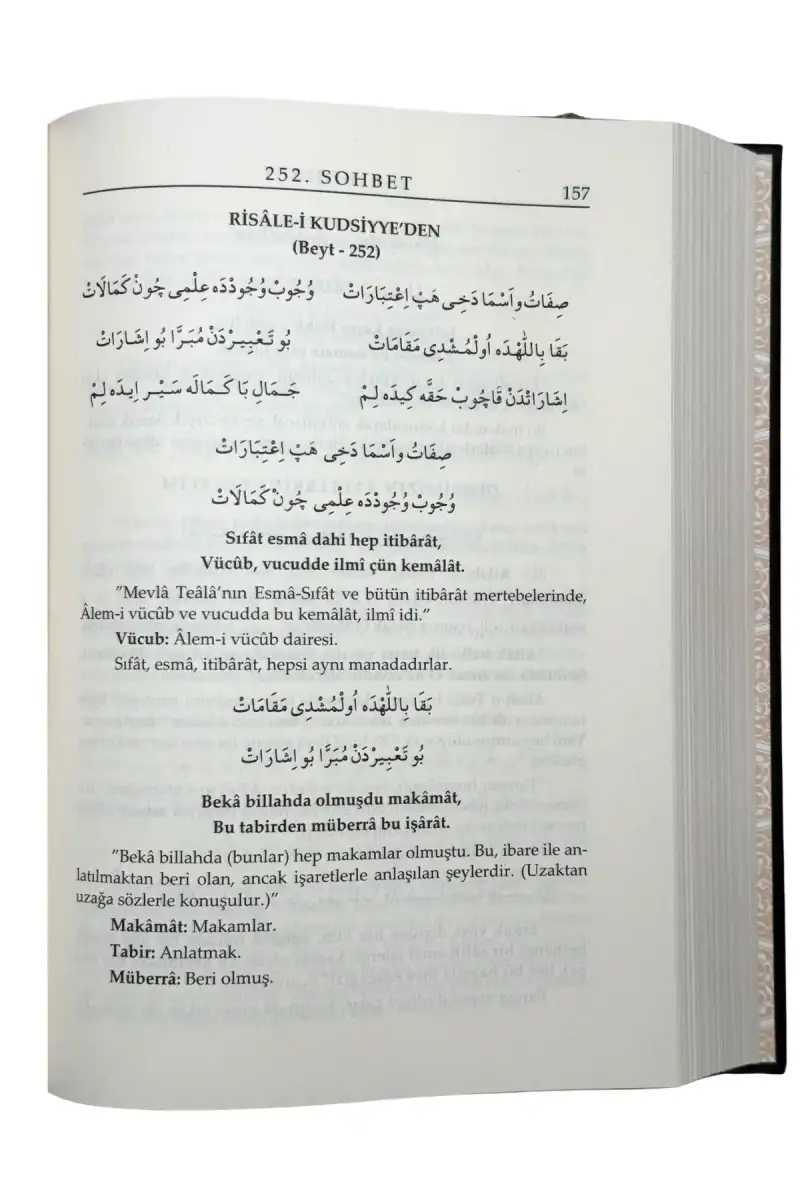 252. SOHBET
157
RİSÂLE-İ KUDSİYYE'DEN
(Beyt - 252)
صِفَاتُ واَسْمَا دَخِى هَپْ اِعْتِبَارَاتْ وُجُوبْ وُجُودْدَه عِلْمِى چُونْ كَمَالَاتْ
بَقَا بِاللّٰهْدَه اُولْمُشْدِى مَقَامَاتْ بُو تَعْبِيرْدَنْ مُبَرَّا بُو اِشَارَاتْ
اِشَارَاتْدَنْ قَاچُوبْ حَقَّه كِيدَه لِمْ جَمَالِ بَا كَمَالَه سَيْر اِيدَه لِمْ
صِفَاتُ واَسْمَا دَخِى هَپْ اِعْتِبَارَاتْ
وُجُوبْ وُجُودْدَه عِلْمِى چُونْ كَمَالَاتْ
Sıfât esmâ dahi hep itibârât,
Vücûb, vucudde ilmî çün kemâlât.
"Mevlâ Teâlâ'nın Esmâ-Sıfât ve bütün itibârât mertebelerinde,
Âlem-i vücûb ve vucudda bu kemâlât, ilmî idi."
Vücub: Âlem-i vücûb dairesi.
Sıfât, esmâ, itibârât, hepsi aynı manadadırlar.
بَقَا بِاللّٰهْدَه اُولْمُشْدِى مَقَامَاتْ
بُو تَعْبِيرْدَنْ مُبَرَّا بُو اِشَارَاتْ
Bekâ billahda olmuşdu makâmât,
Bu tabirden müberrâ bu işârât.
"Bekâ billahda (bunlar) hep makamlar olmuştu. Bu, ibare ile an-
latılmaktan beri olan, ancak işaretlerle anlaşılan şeylerdir. (Uzaktan
uzağa sözlerle konuşulur.)"
Makâmât: Makamlar.
Tabir: Anlatmak.
Müberrâ: Beri olmuş.